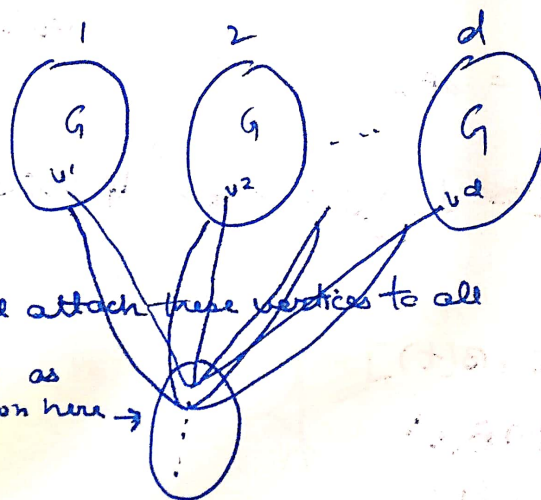 1 2 d
G G --- G
v¹ v² vᵈ
attach these vertices to all
as
on here →